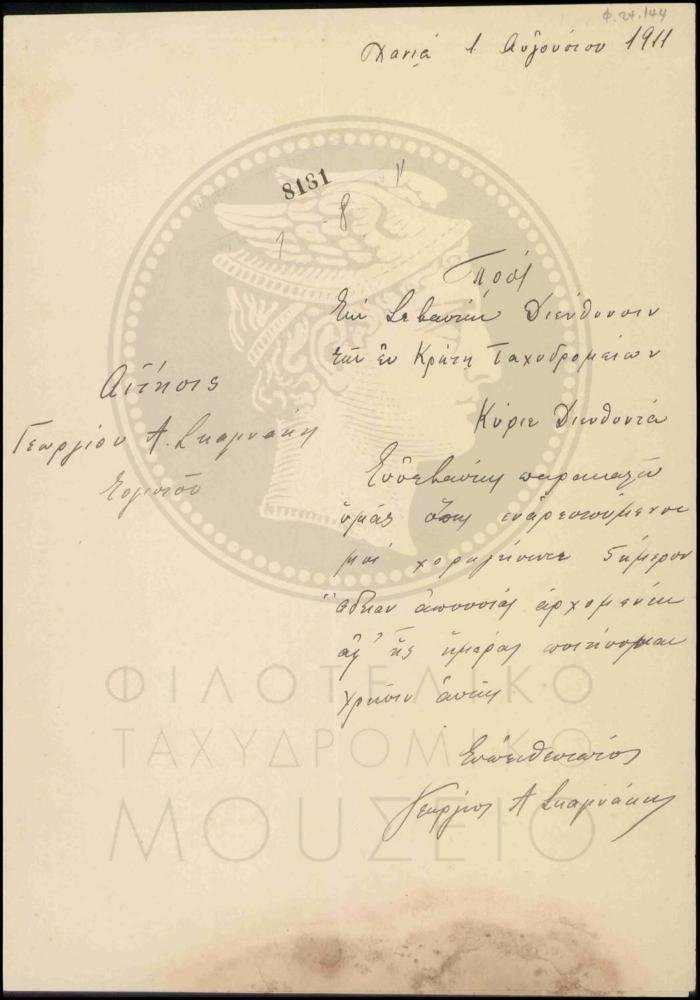 Φ.24.144
Χανιά 1 Αὐγούστου 1911
8131
1 - 8
Πρός
τὴν Σεβαστὴν Διεύθυνσιν
τῶν ἐν Κρήτῃ Ταχυδρομείων
Αἴτησις
Γεωργίου Α. Σκαμνάκη
Κύριε Διευθυντά
Εὐσεβάστως παρακαλῶ
ὑμᾶς ὅπως εὐαρεστούμενος
μοὶ χορηγήσητε 5ήμερον
ἄδειαν ἀπουσίας ἀρχομένην
ἀφ' ἧς ἡμέρας ποιήσομαι
χρῆσιν αὐτῆς
Εὐπειθέστατος
Γεώργιος Α Σκαμνάκης
ΦΙΛΟΤΕΛΙΚΟ
ΤΑΧΥΔΡΟΜΙΚΟ
ΜΟΥΣΕΙΟ